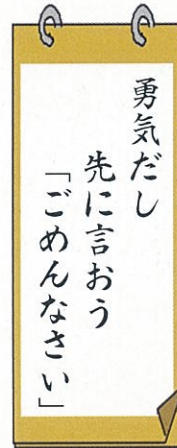 勇気だし
先に言おう
「ごめんなさい」